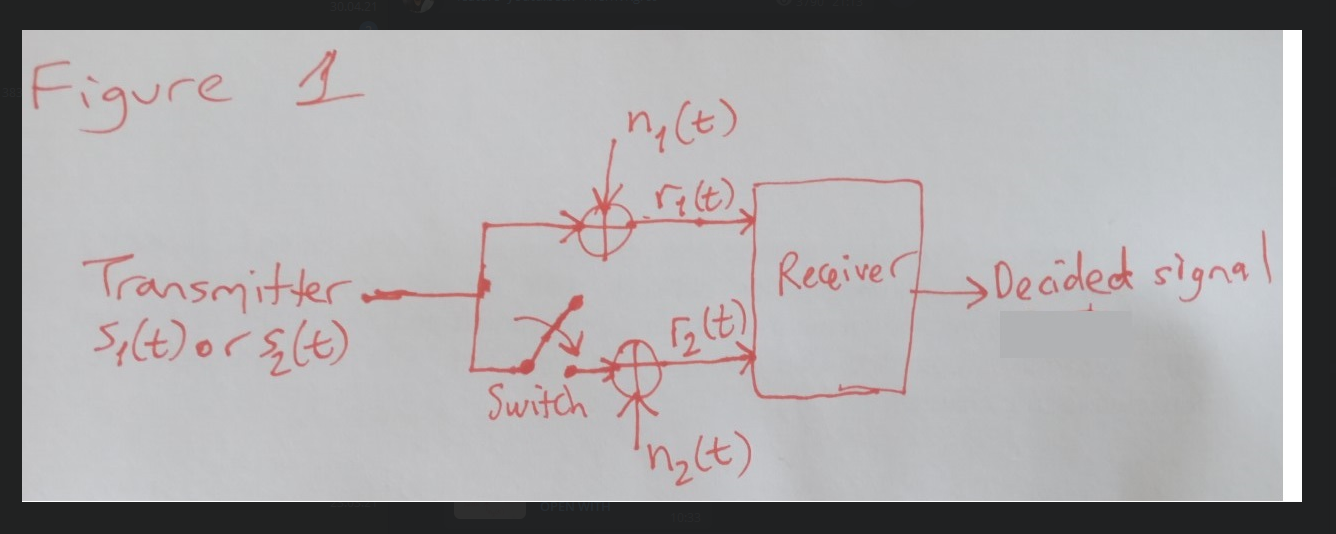 Figure 1
n₁(t)
r₁(t)
Transmitter
s₁(t) or s₂(t)
Receiver
Decided signal
r₂(t)
Switch
n₂(t)
OPEN WITH